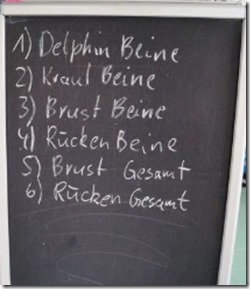 1) Delphin Beine
2) Kraul Beine
3) Brust Beine
4) Rücken Beine
5) Brust Gesamt
6) Rücken Gesamt